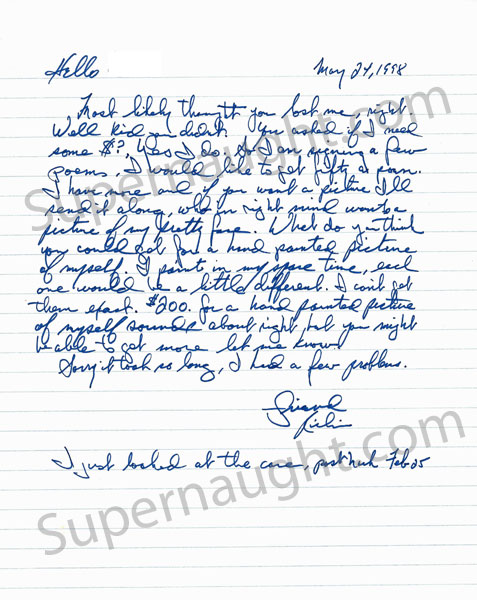 Hello
May 24, 1998
Most likely thought you lost me, right.
Well kid you didn't. You asked if I need
some $?, Yes I do. So I am signing a few
poems, I would like to get fifty a poem.
I have more and if you want a picture I'll
send it along, who in right mind wants a
picture of my pretty face. What do you think
you could get for a hand painted picture
of myself. I paint in my spare time, each
one would be a little different. I can't get
them exact. $200. for a hand painted picture
of myself sounds about right, but you might
be able to get more let me know
Sorry it took so long, I had a few problems.
Friend
I just looked at the care, post mark Feb 25
Supernaught.com
Supernaught.com
Supernaught.com